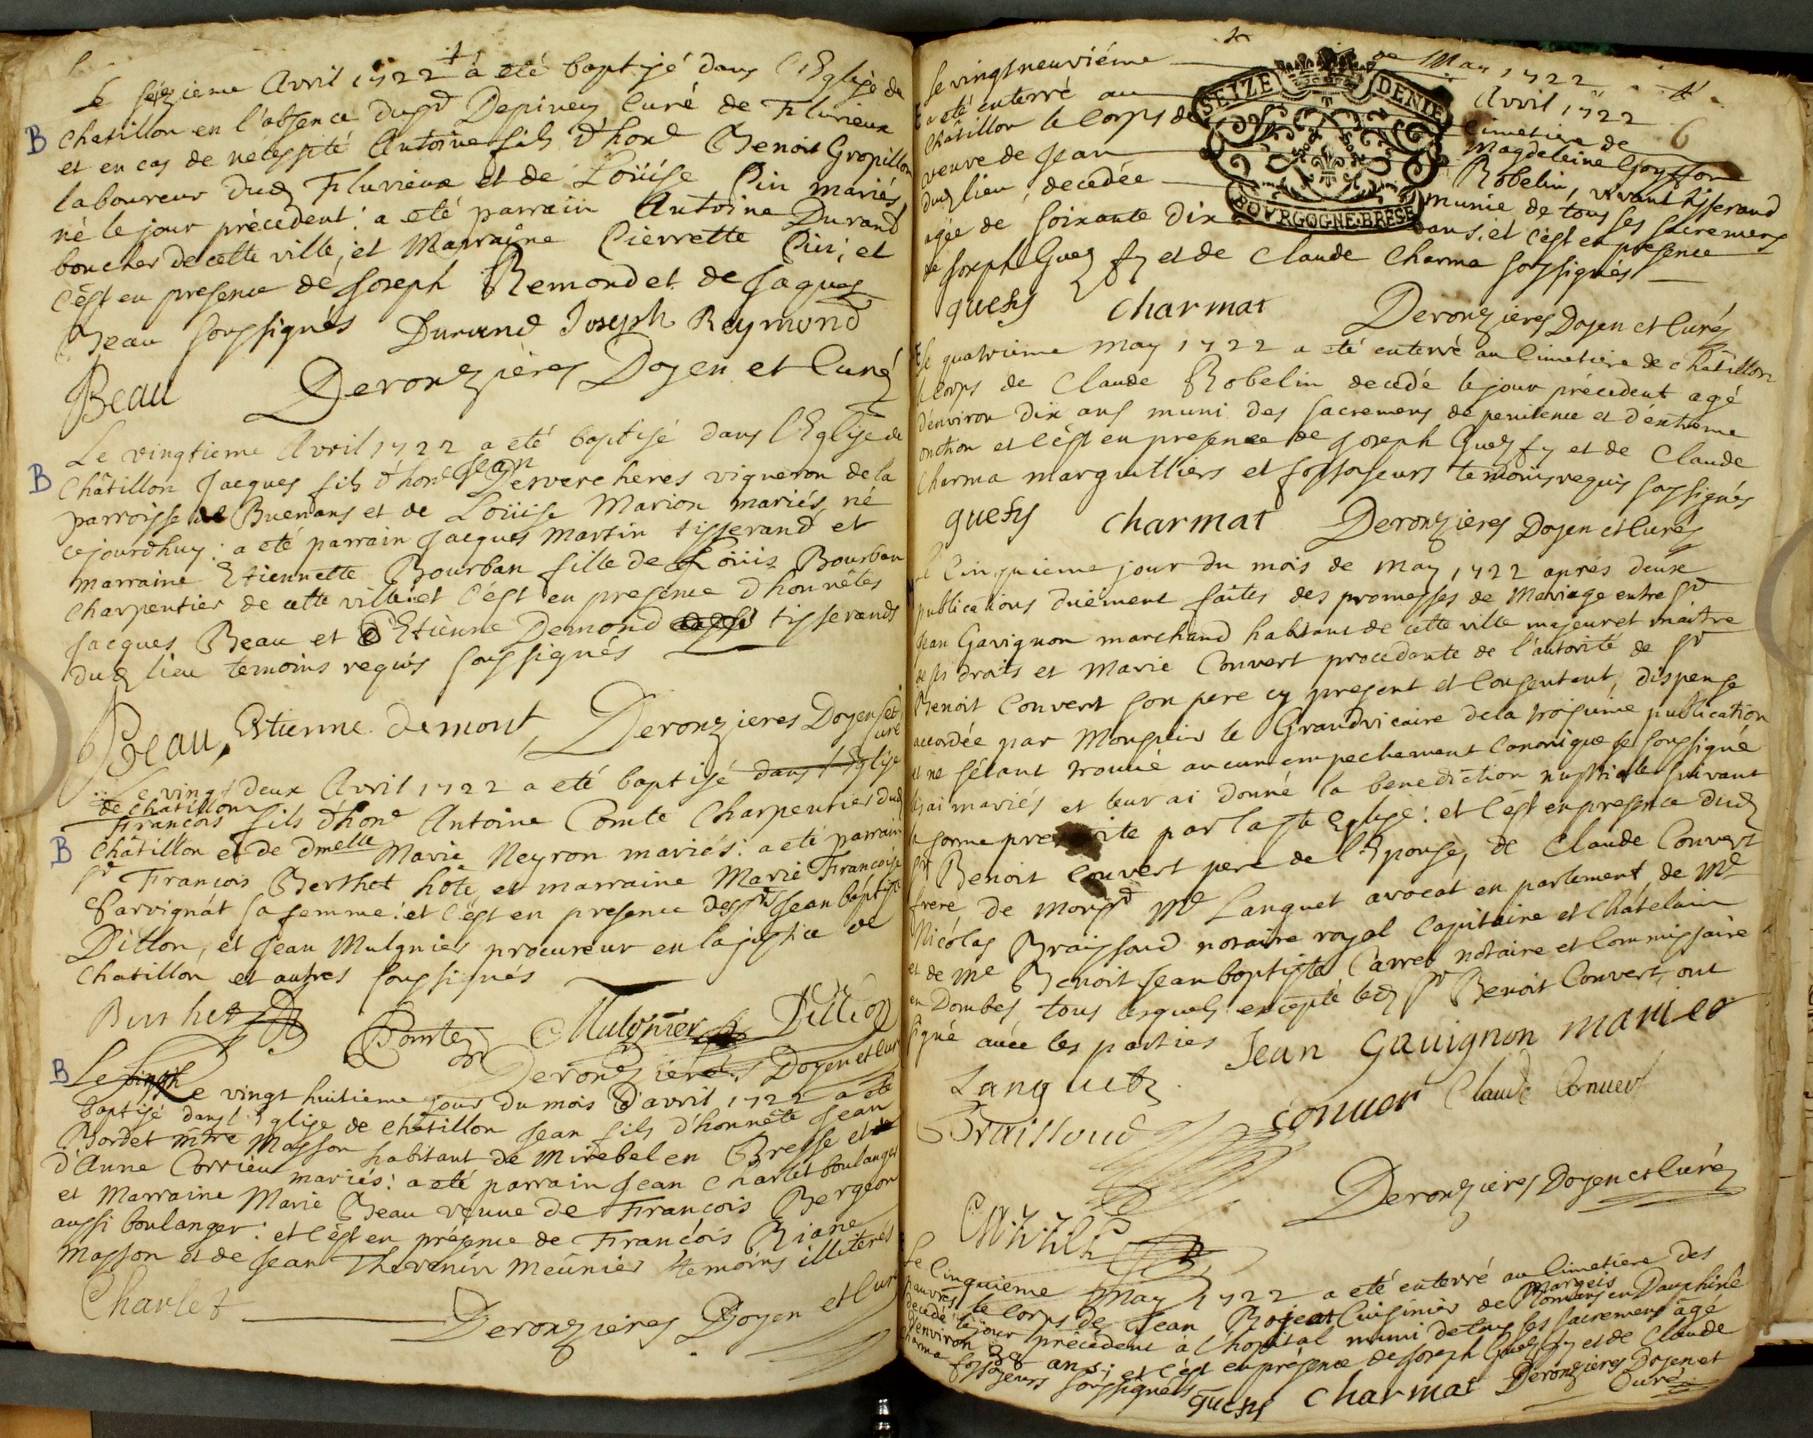 Le sèzieme Avril 1722 + a eté baptisé dans l'Eglise de
B
Chatillon en l'absence dusr Depiney Curé de Flurieux
et en cas de necessité Antoine fils d'hone Benoit Gropillon
laboureur dud Fluvieux et de Loüise Pin mariés,
né le jour précedent: a eté parrain Antoine Durand
boucher de cette ville, et Marraine Pierrette Pin; et
c'est en presence de Joseph Remond et de Jaques
Beau soussignés Durand Joseph Reymond
Beau Deronzieres Doyen et Curé
Le vingtieme Avril 1722 a eté baptisé dans l'Eglise de
B
Châtillon Jacques fils d'hone Jean Dervercheres vigneron de la
parroisse de Buenans et de Loüise Marion mariés, né
cejourdhuy: a eté parrain Jacques Martin tisserand et
marraine Etiennette Bourban fille de Loüis Bourban
Charpentier de cette ville: et c'est en presence d'honnêtes
Jacques Beau et Etienne Demond tisserands
dud lieu temoins requis soussignés
Beau, Estienne demont, Deronzieres Doyen et
Curé
Le vingt deux Avril 1722 a eté baptisé dans l'Eglise
de Chatillon
François fils d'hone Antoine Comte Charpentier dud
B
Châtillon et de dmelle Marie Neyron mariés: a eté parrain
sr François Berthet hôte, et marraine Marie Françoise
Parvignat sa femme: et c'est en presence des srs Jean baptiste
Dillon, et Jean Mulgnier procureur en la justice de
Chatillon et autres soussignés
Comte Mulgnier Dillion
Deronzieres Doyen et Curé
B
Le vingt huitieme jour du mois d'avril 1722 a eté
baptisé dans l'Eglise de châtillon Jean fils d'honnête Jean
Bordet mtre Masson habitant de Mirebel en Bresse et
d'Anne Corrieu mariés: a eté parrain Jean Charlet boulanger
et Marraine Marie Beau veuve de François Bergeon
aussi boulanger: et c'est en présence de François Riane
masson et de Jean Thevenin meûnier témoins illiterés
Charlet Deronzieres Doyen et Curé
de May 1722
SEIZE DENIE
BOURGOGNE·BRESSE
6
Le vingtneuviéme Avril 1722
a eté enterré au Cimetiere de
Châtillon le Corps de Magdeleine Gouffon
veuve de Jean Robelin, vivant tisserand
dud lieu, decedée munie de tous ses sacremens
agée de soixante dix ans, et c'est en presence
de Joseph Guesfy et de Claude Charma soussignés
guesfy charmat Deronzieres Doyen et Curé
E
Le quatrieme may 1722 a eté enterré au Cimetiere de châtillon
le corps de Claude Robelin decedé le jour précedent agé
d'environ dix ans muni des sacremens de penitence et d'extrême
onction et c'est en presence de Joseph Guesfy et de Claude
Charma marguilliers et fossoyeurs temoins requis soussignés
guesfy charmat Deronzieres Doyen et Curé
Le Cinquieme jour du mois de may 1722 apres deux
publications düement faites des promesses de Mariage entre sr
Jean Gavignon marchand habitant de cette ville majeur et maitre
de ses droits et Marie Convert procedante de l'autorité de sr
Benoit Convert son pere cy present et Consentant, dispense
accordée par Monsieur le Grandvicaire de la troisieme publication
et ne s'étant trouvé aucun empechement Canonique je soussigné
les ai mariés et leur ai donné la benediction nuptiale suivant
la forme prescrite par la ste Eglise: et c'est en presence dud
sr Benoit Convert pere de l'Epouse, de Claude Convert
frere de Monsr Me Languet avocat en parlement de Me
Nicolas Braissoud notaire royal Capitaine et Châtelain
et de Me Benoit Jean baptiste Carrel notaire et Commissaire
en Dombes tous lesquels excepté led sr Benoit Convert, ont
signé avec les parties Jean Gauignon
Languet
Braissoud conuer Claude Conuert
Deronzieres Doyen et Curé
Le Cinquieme May 1722 a eté enterré au Cimetiere des
pauvres le corps de Jean Cuisinier de Romans en Dauphiné
decedé le jour précedent à l'hopital muni de tous les sacremens agé
d'environ 38 ans; et c'est en présence de Joseph Guesfy et de Claude
Charma fossoyeurs soussignés guesfy charmat Deronzieres Doyen et
Curé